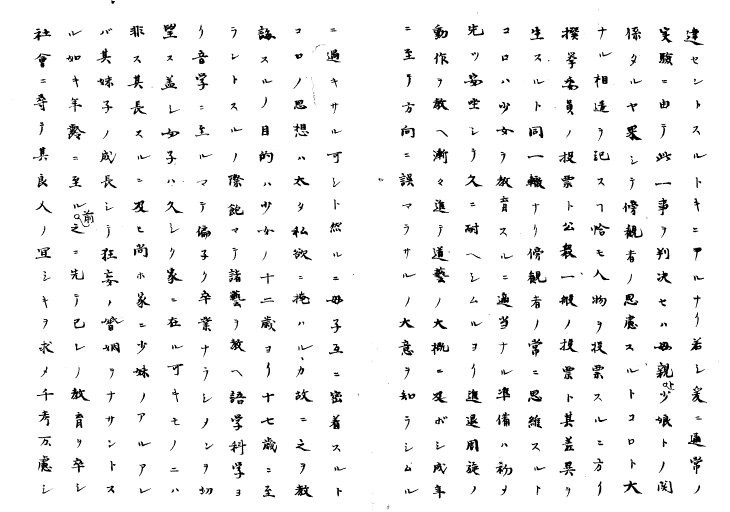 達セントスルトキニアルナリ若シ爰ニ通常ノ
実驗ニ由テ此一事ヲ判决セハ母親ト少娘トノ関
係タルヤ果シテ傍観者ノ思慮スルトコロト大
ナル相違ヲ記ス恰モ人物ヲ投票スルニ方リ
撰挙委員ノ投票ト公衆一般ノ投票ト其差異ヲ
生スルト同一轍ナリ傍観者ノ常ニ思維スルト
コロハ少女ヲ教育スルニ適当ナル準備ハ初メ
先ツ安坐シテ久ニ耐ヘシムルヨリ進退周旋ノ
動作ヲ教ヘ漸々進テ道藝ノ大概ニ及ボシ成年
ニ至テ方向ニ誤マラサルノ大意ヲ知ラシムル
ニ過キサル可シト然ルニ母子互ニ密着スルト
コロノ思想ハ太タ私欲ニ掩ハルヽカ故ニ之ヲ教
誨スルノ目的ハ少女ノ十二歳ヨリ十七歳ニ至
ラントスルノ際飽マテ諸藝ヲ教ヘ語学科学ヨ
リ音学ニ至ルマテ偏ク卒業ナラシメンヲ切
望ス蓋シ女子ハ久シク家ニ在ル可キモノニハ
非ス其長スルニ及ヒ尚ホ家ニ少妹ノアルアレ
バ其妹子ノ成長シテ狂妄ノ婚姻ヲナサントス
ル如キ年齢ニ至ル前之ニ先テ己レノ教育ヲ卒シ
社會ニ尋テ其良人ノ宜シキヲ求メ千考万慮シ